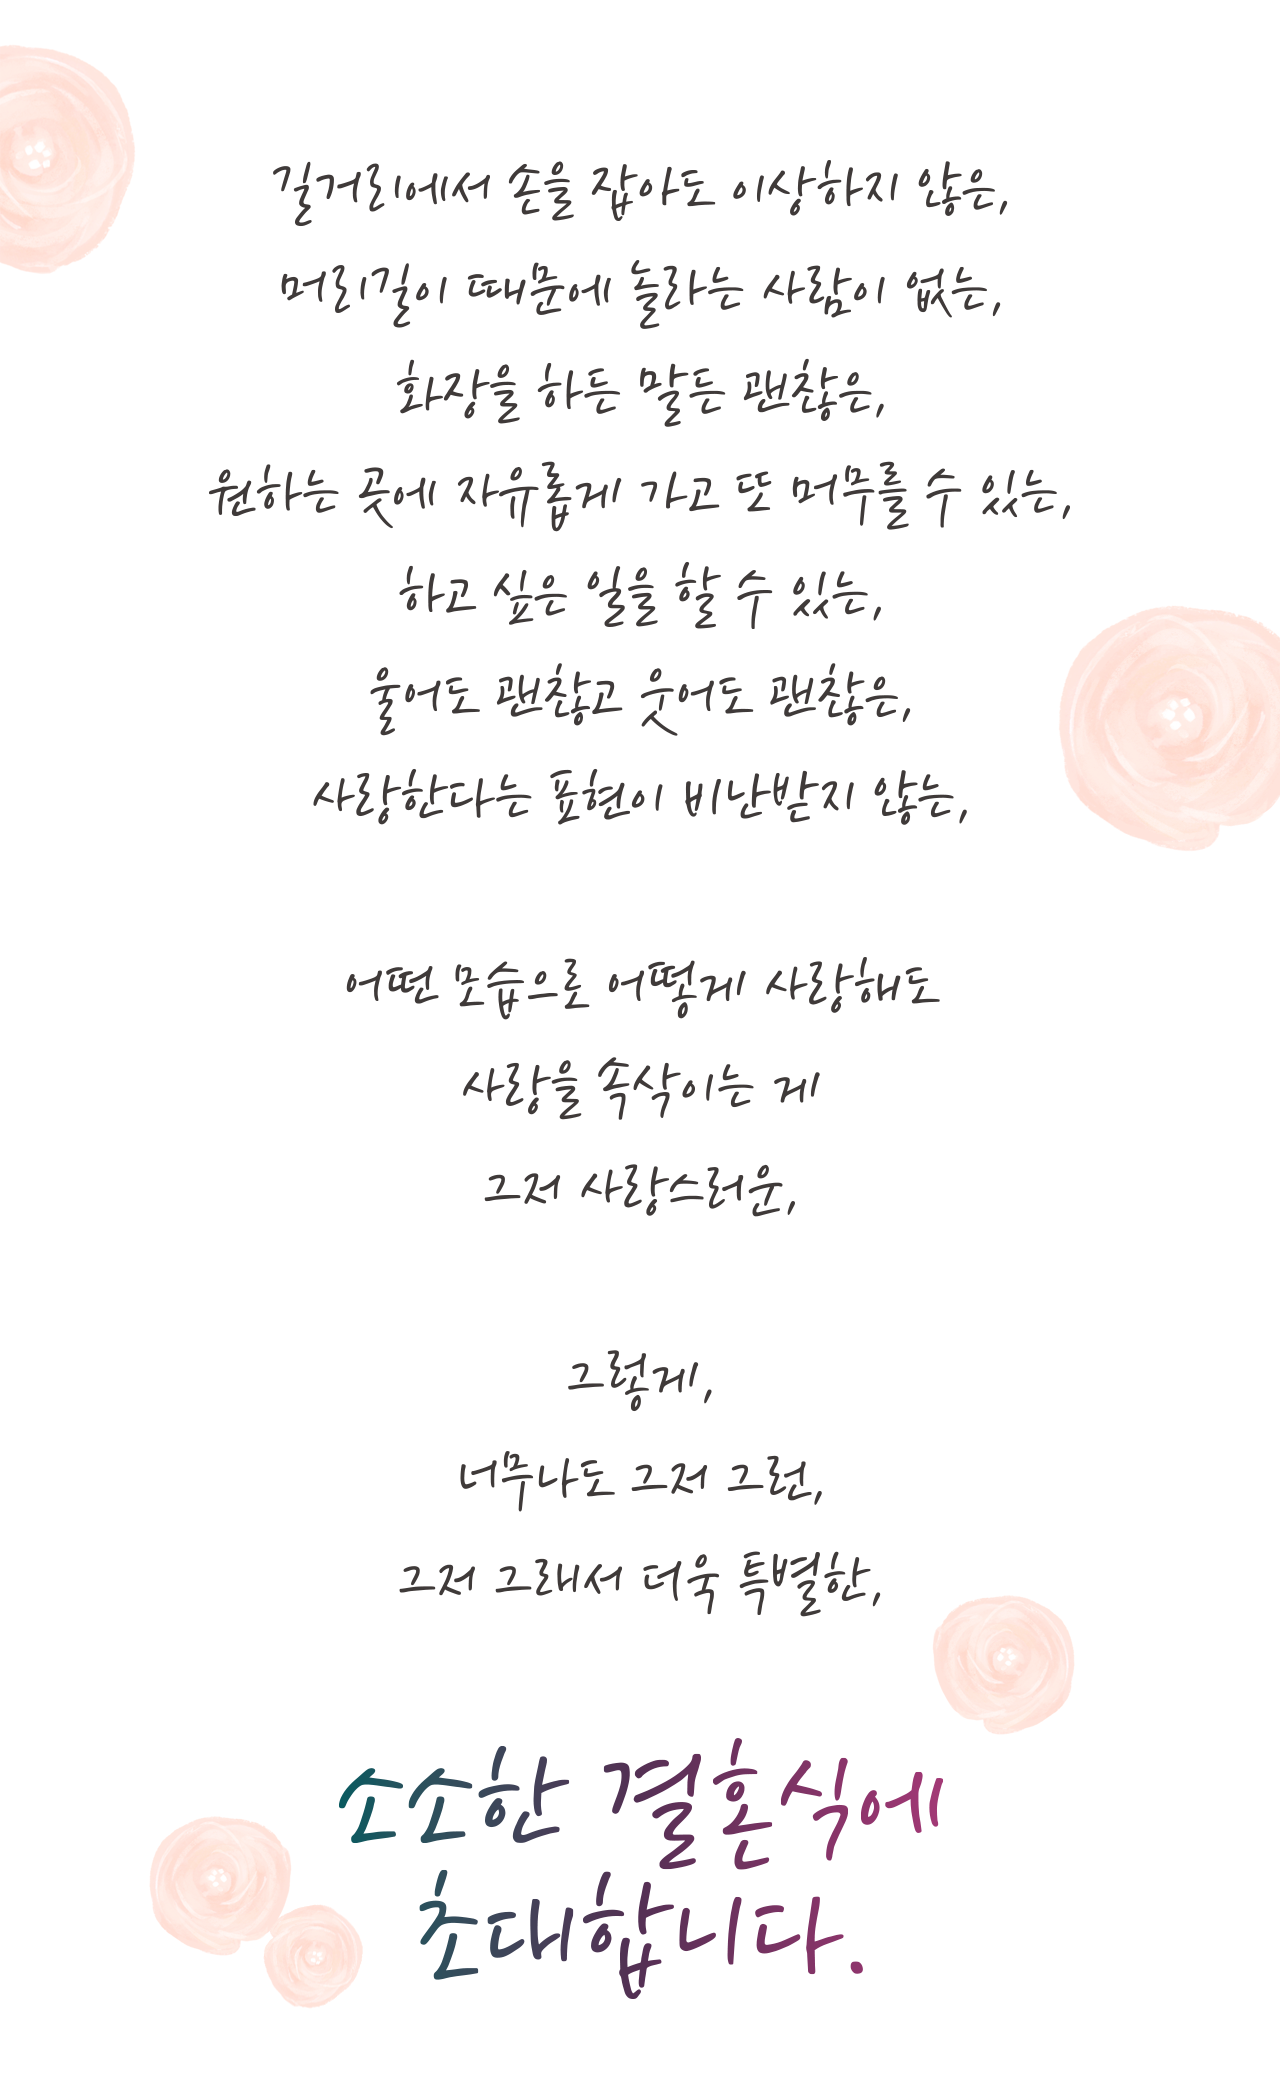 길거리에서 손을 잡아도 이상하지 않은,
머리길이 때문에 놀라는 사람이 없는,
화장을 하든 말든 괜찮은,
원하는 곳에 자유롭게 가고 또 머무를 수 있는,
하고 싶은 일을 할 수 있는,
울어도 괜찮고 웃어도 괜찮은,
사랑한다는 표현이 비난받지 않는,
어떤 모습으로 어떻게 사랑해도
사랑을 속삭이는 게
그저 사랑스러운,
그렇게,
너무나도 그저 그런,
그저 그래서 더욱 특별한,
소소한 결혼식에
초대합니다.